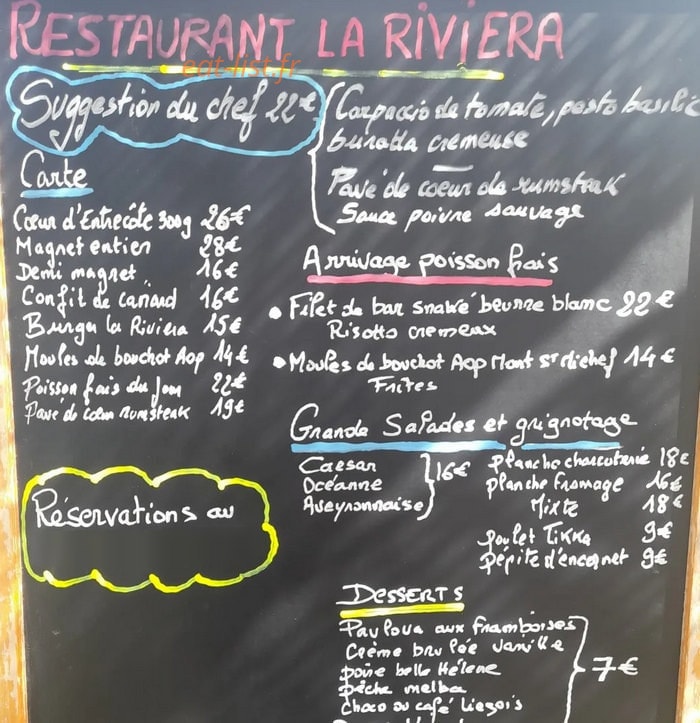 RESTAURANT LA RIVIERA
eat-list.fr
Suggestion du chef 22€
Carpaccio de tomate, pesto basilic
buratta crémeuse
Pavé de coeur de rumsteak
Sauce poivre sauvage
Carte
Cœur d'Entrecôte 300g 26€
Magret entier 28€
Demi magret 16€
Confit de canard 16€
Burger la Riviera 15€
Moules de bouchot Aop 14€
Poisson frais du jour 22€
Pavé de cœur rumsteak 19€
Réservations au
Arrivage poisson frais
• Filet de bar snaké beurre blanc 22€
Risotto crémeux
• Moules de bouchot Aop Mont St Michel 14€
Frites
Grande Salades et grignotage
Caesar
Océanne
Aveyronnaise
16€
planche charcuterie 18€
planche fromage 16€
Mixte 18€
poulet Tikka 9€
pépite d'encornet 9€
DESSERTS
Pavlova aux framboises
Crème brulée vanille
poire belle Hélène
pêche melba
choco ou café liégois
7€